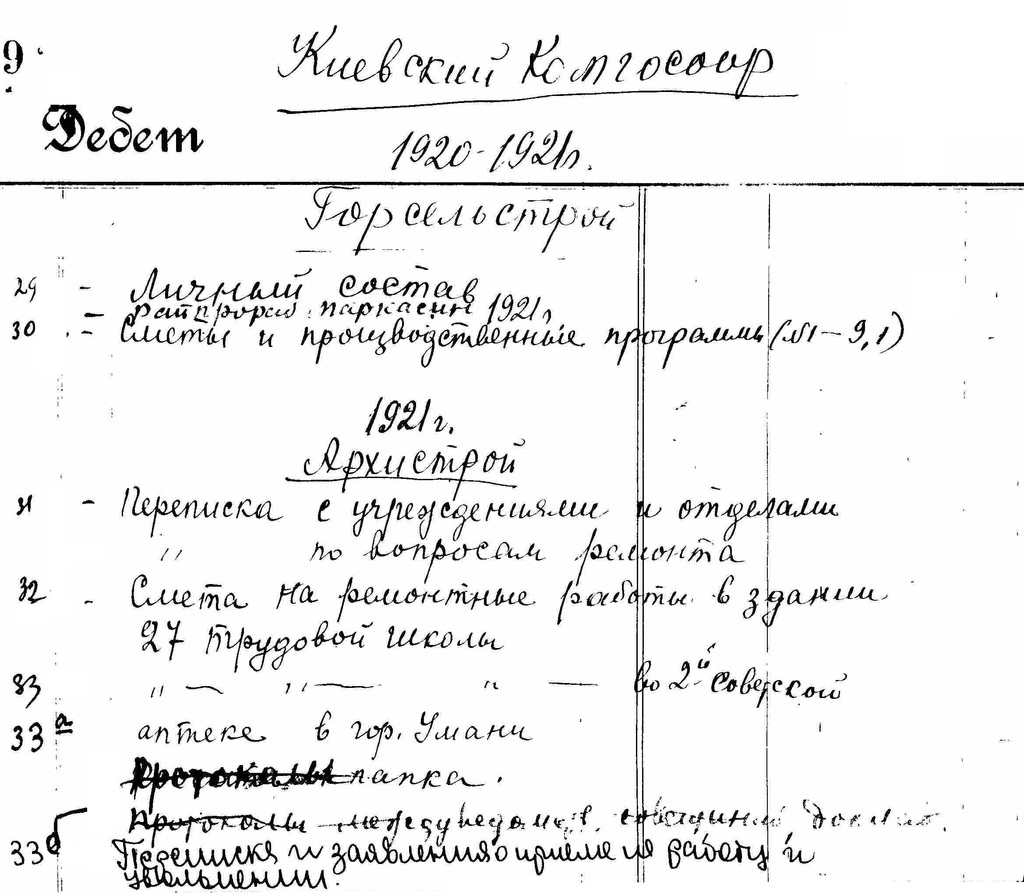 9
Киевский Комгосоор
Дебет
1920-1921г.
Горсельстрой
29 - Личный состав
- 1921г
30 - Сметы и производственные программы (№1-9,1)
1921г.
Архистрой
31 - Переписка с учреждениями и отделами
" по вопросам ремонта
32 - Смета на ремонтные работы в здании
27 трудовой школы
33 " — " — " — во 2й Советской
33а аптеке в гор. Умани
Протоколы папка.
Протоколы междуведомств. совещаний доклад.
33б Переписка и заявления о приеме на работу и
увольнении.